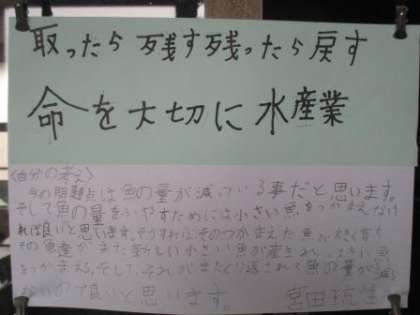 取ったら残す残ったら戻す
命を大切に水産業
〈自分の考え〉
今の問題点は魚の量が減っている事だと思います。
そして魚の量をふやすためには小さい魚をつかまえなけ
れば良いと思います。そうすれば、そのつかまえた魚が大きくなり
その魚達がまた新しい小さい魚が産まれ
をつかまえる。そして、それがまたくり返されて魚の量が減ら
ないので良いと思います。 宮田